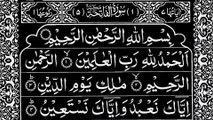 سُوْرَةُ الْفَاتِحَةِ
بِسْمِ اللّٰهِ الرَّحْمٰنِ الرَّحِيْمِ
اَلْحَمْدُ لِلّٰهِ رَبِّ الْعٰلَمِيْنَ ۝ الرَّحْمٰنِ
الرَّحِيْمِ ۝ مٰلِكِ يَوْمِ الدِّيْنِ ۝
اِيَّاكَ نَعْبُدُ وَاِيَّاكَ نَسْتَعِيْنُ ۝